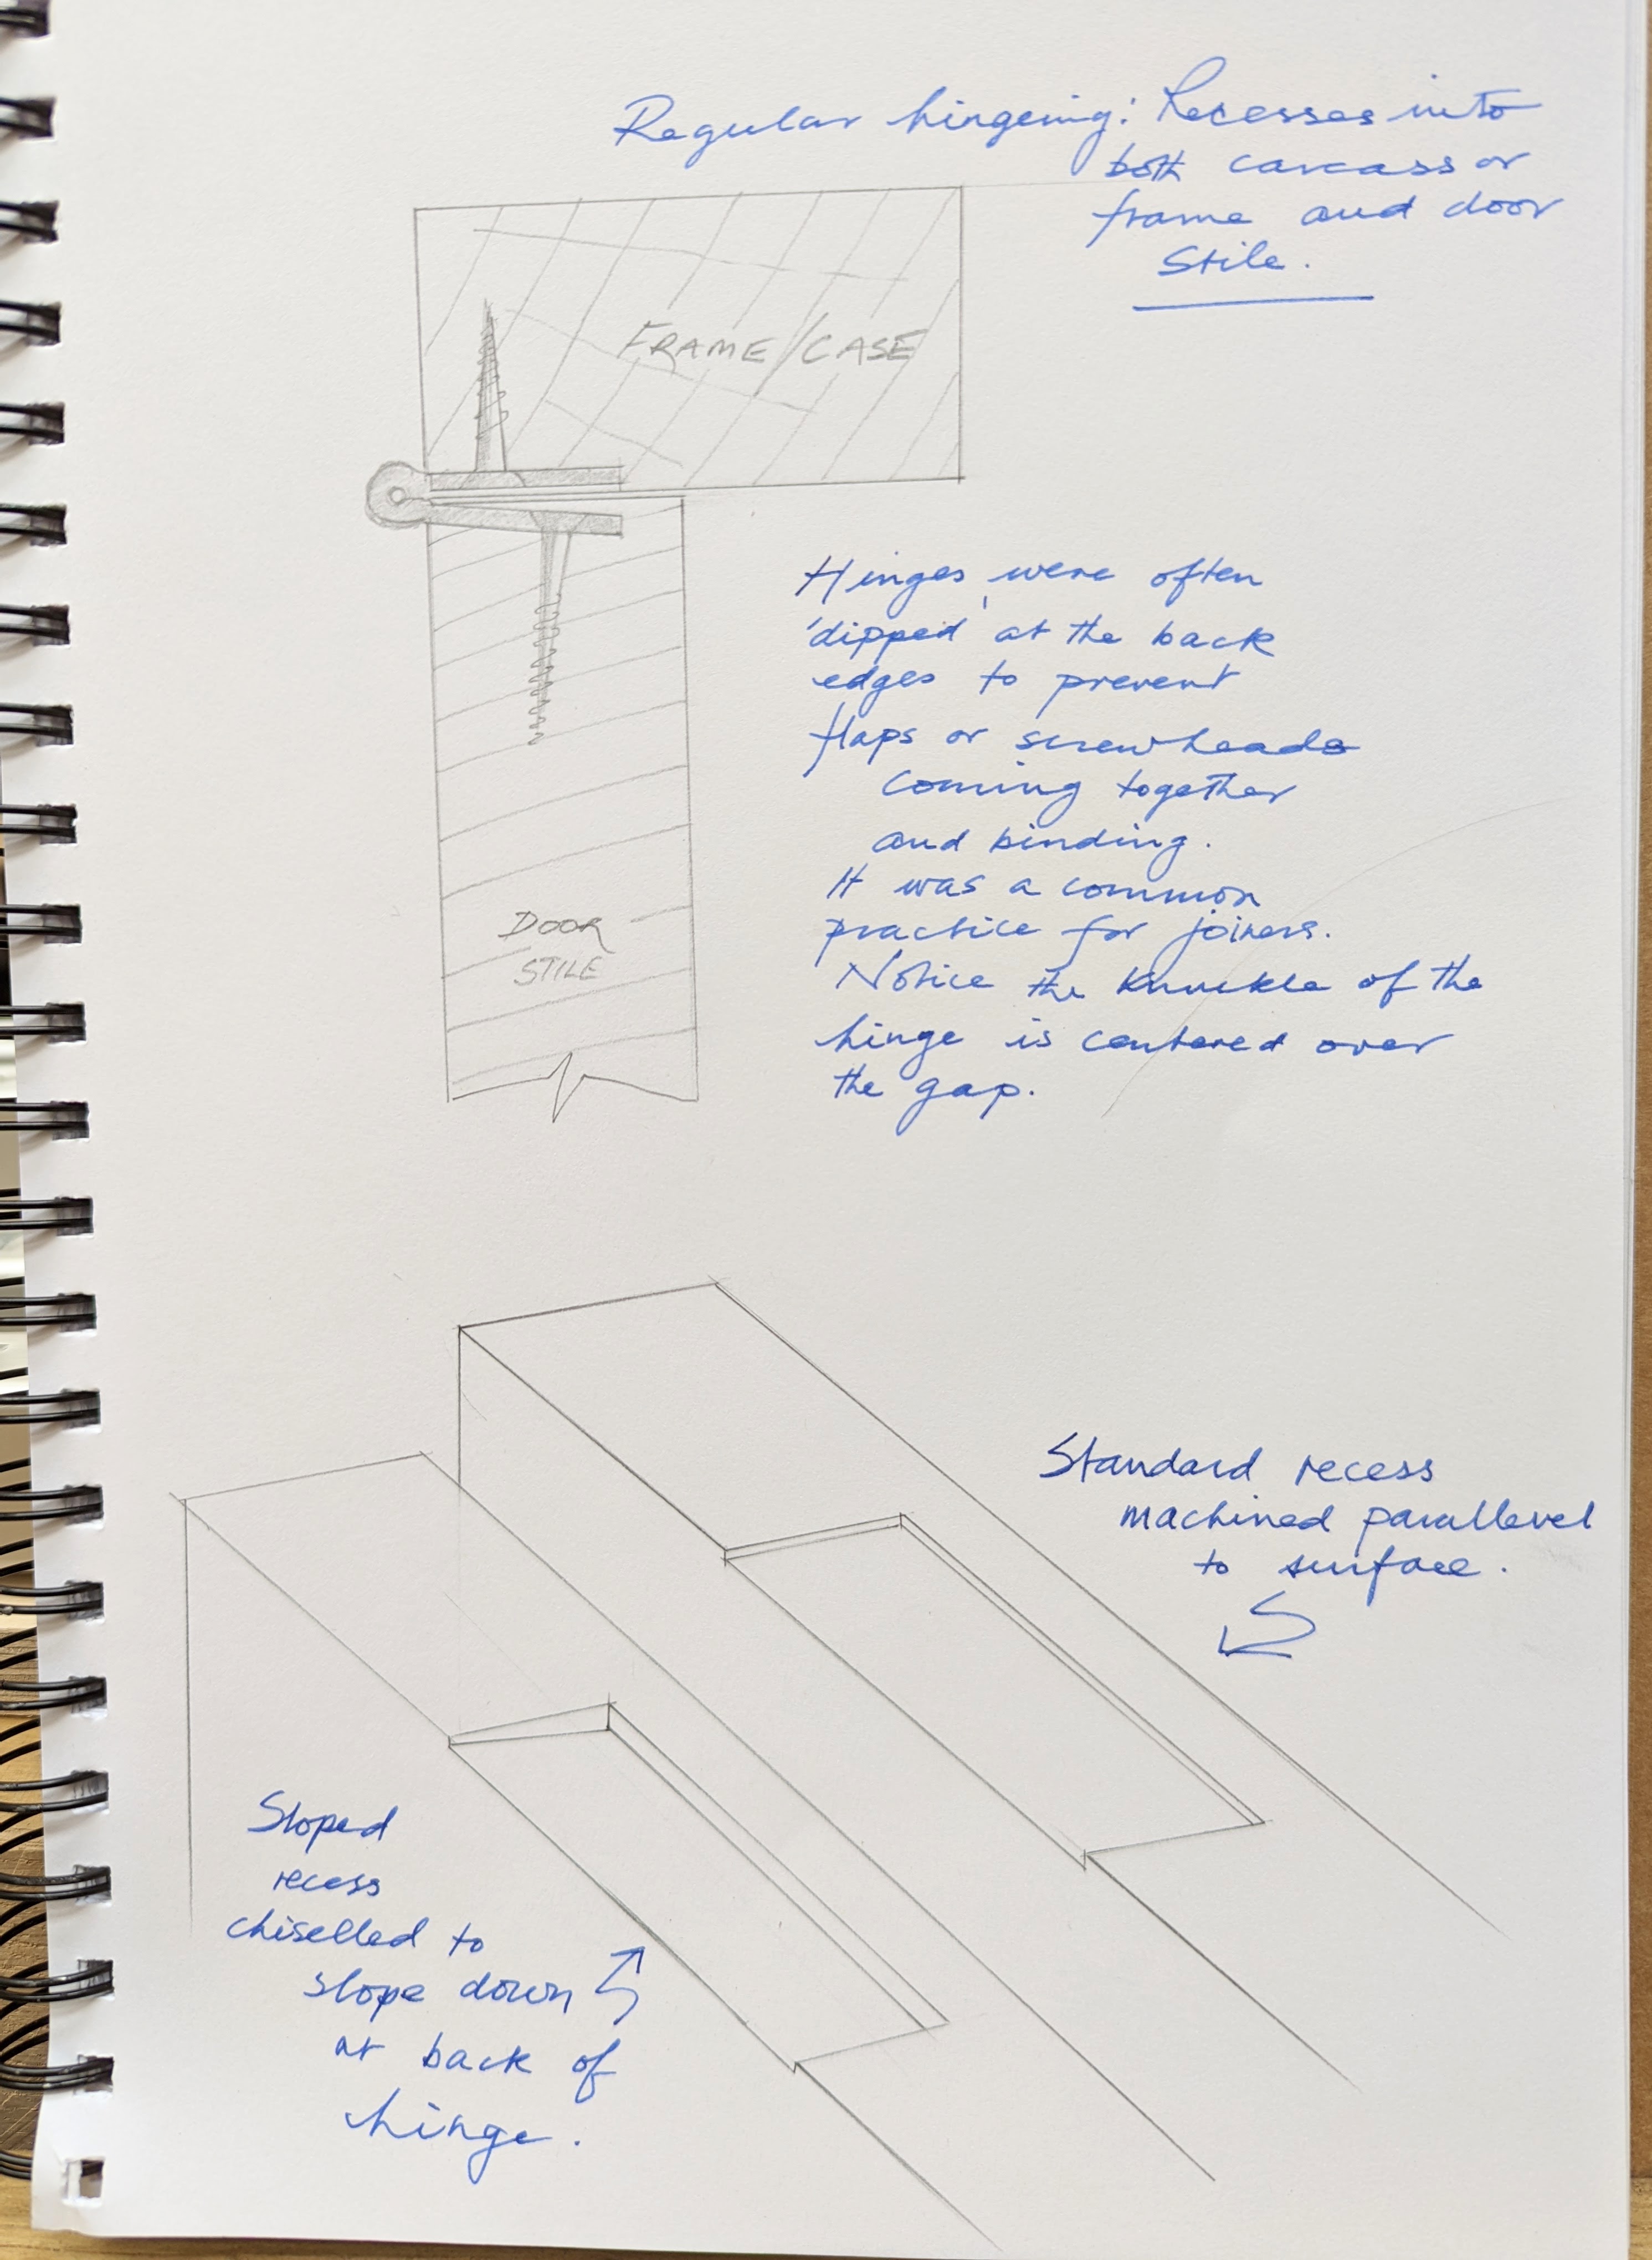 Regular hingeing: Recesses into
both carcass or
frame and door
stile.
FRAME/CASE
Hinges were often
'dipped' at the back
edges to prevent
flaps or screwheads
coming together
and binding.
It was a common
practice for joiners.
Notice the knuckle of the
hinge is centered over
the gap.
DOOR
STILE
Standard recess
machined parallevel
to surface.
Sloped
recess
chiselled to
slope down
at back of
hinge.